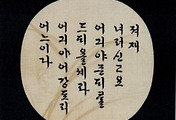 져재
녀러신고요
어긔야즌ᄃᆡ를
드ᄃᆡ욜셰라
어긔야어강됴리
어느이다